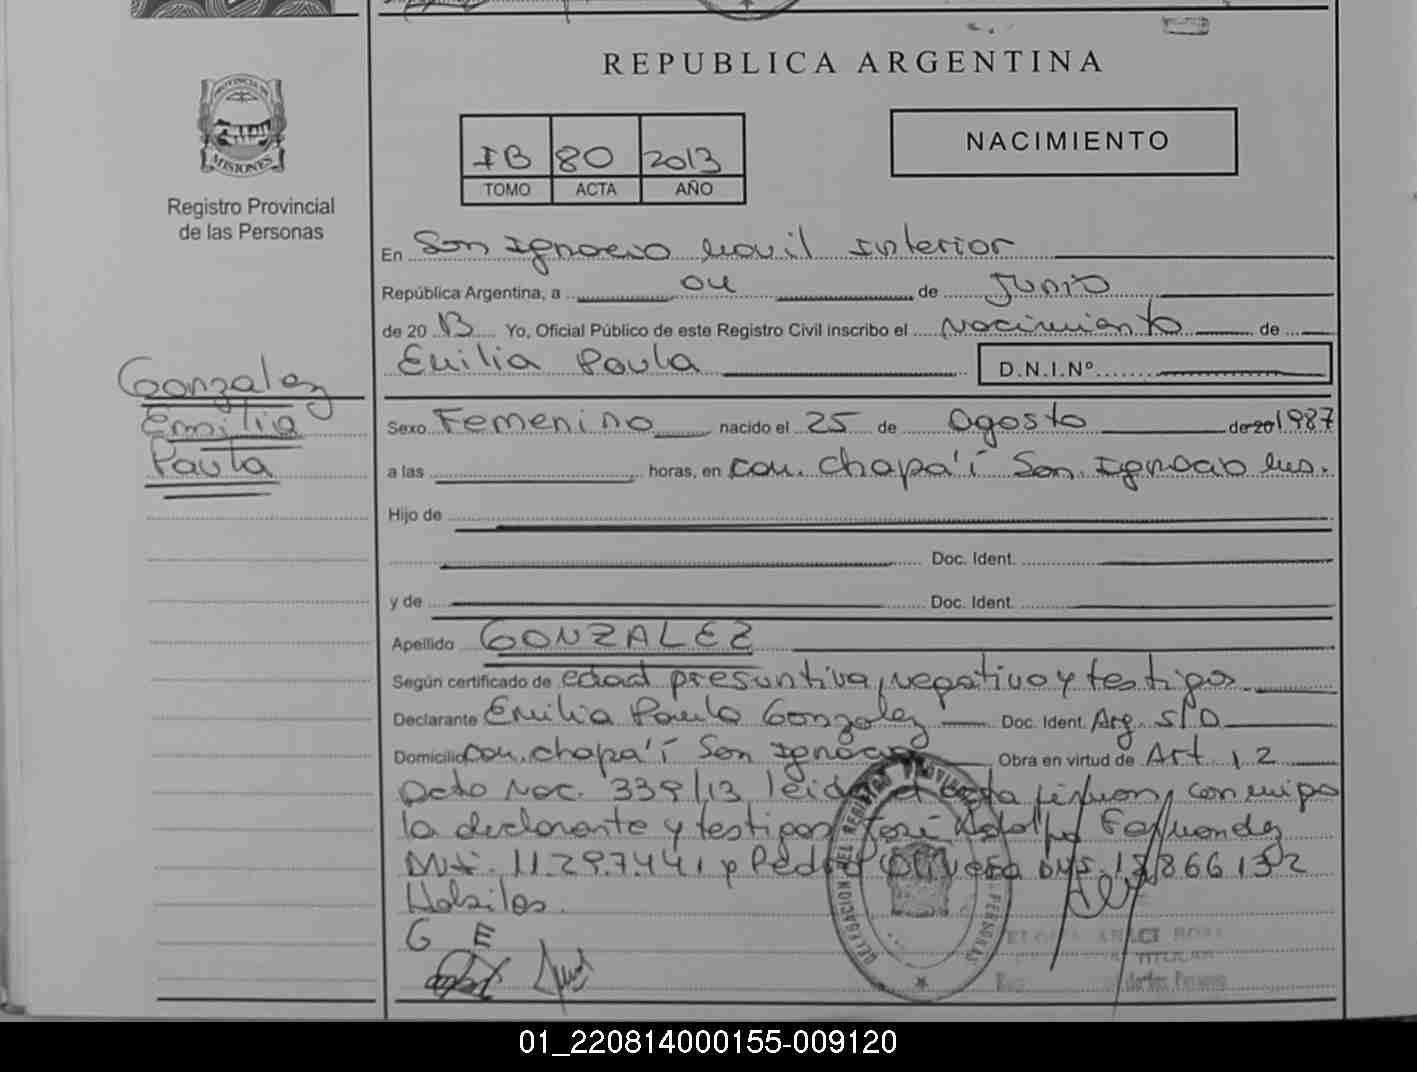 REPUBLICA ARGENTINA
PROVINCIA DE
MISIONES
Registro Provincial
de las Personas
IB 80 2013
TOMO ACTA AÑO
NACIMIENTO
En San Ignacio Movil Interior
República Argentina, a 04 de Junio
de 20 13 Yo, Oficial Público de este Registro Civil inscribo el Nacimiento de
Emilia Paula D.N.I.Nº
Gonzalez
Emilia
Paula
Sexo Femenino nacido el 25 de Agosto de 20 1987
a las horas, en com. chapa'í San Ignacio Mns.
Hijo de
Doc. Ident.
y de Doc. Ident.
Apellido GONZALEZ
Según certificado de edad presuntiva, negativo y testigos
Declarante Emilia Paula Gonzalez Doc. Ident. Arg. S/D
Domicilio com. chapa'í San Ignacio Obra en virtud de Art. 12
Dcto Nac. 339/13 leida el acta firman conmigo
la declarante y testigos José Adolfo Fernandez
11.297.441 y Pedro Olivera
Habiles.
G E
DELEGACION DEL REGISTRO PROVINCIAL PERSONAS
TITULAR
de las Personas
01_220814000155-009120